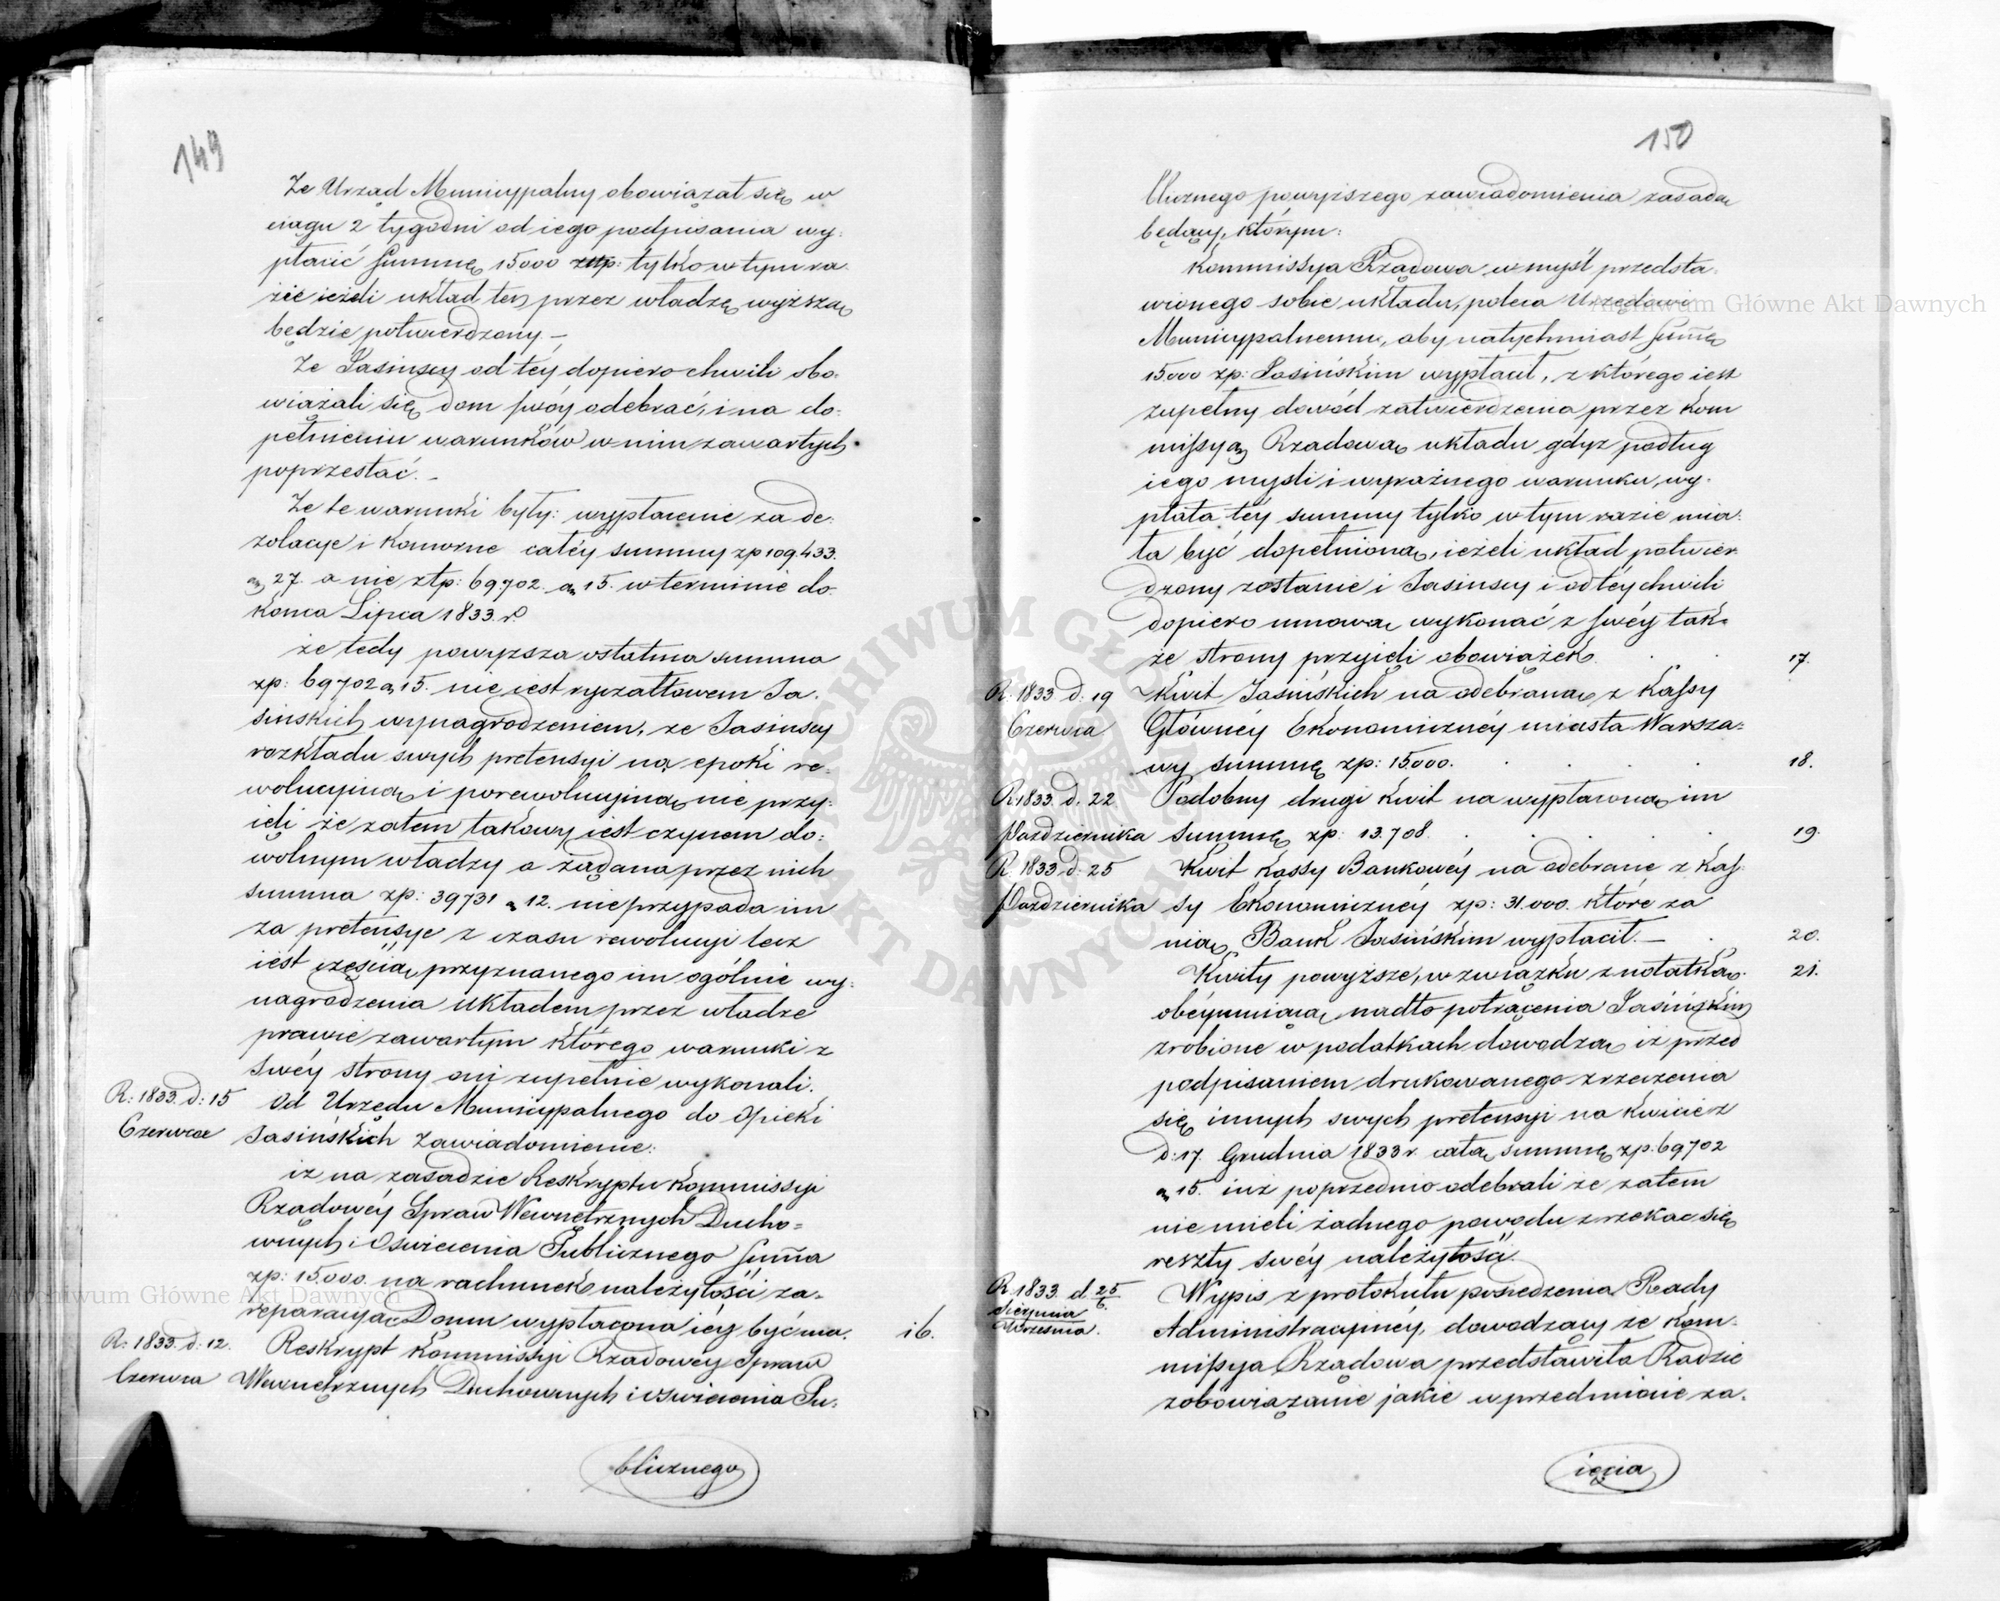 149
Że Urząd Municypalny obowiązał się w
ciągu 2 tygodni od iego podpisania wy-
płacić Summę 15000 złp: tylko w tym ra-
zie ieżeli układ ten przez władzę wyższą
będzie potwierdzony. —
Że Jasinscy od téy dopiero chwili obo-
wiązali się dom swóy odebrać, i na do-
pełnieniu warunków w nim zawartych
poprzestać. —
Że te warunki były: wypłacenie za de-
zolacye i komorne całéy summy zp 109433.
gr 27. a nie złp: 69702. gr 15. w terminie do
końca Lipca 1833. r.
że tedy powyższa ostatnia summa
zp: 69702 gr 15. nie iest ryczałtowem Ja-
sińskich wynagrodzeniem, że Jasinscy
rozkładu swych pretensyi na epoki re-
wolucyiną i porewolucyiną nie przy-
ięli że zatem takowy iest czynem do-
wolnym władzy a żądana przez nich
summa zp: 39731 gr 12. nie przypada im
za pretensye z czasu rewolucyi lecz
iest częścią przyznanego im ogólnie wy-
nagrodzenia układem przez władze
prawie zawartym którego warunki z
swéy strony oni zupełnie wykonali.
R: 1833. d: 15 Od Urzędu Municypalnego do Opieki
Czerwca Jasińskich Zawiadomienie:
iż na zasadzie Reskryptu Kommissyi
Rządowéy Spraw Wewnętrznych Ducho-
wnych i Oświecenia Publicznego Summa
zp: 15.000. na rachunek należytości za
reparacyą Domu wypłacona iéy być ma. 16.
R: 1833. d: 12. Reskrypt Kommissyi Rządowéy Spraw
Czerwca Wewnętrznych Duchownych i oświecenia Pu-
blicznego
150
blicznego powyższego zawiadomienia zasadą
będący, którym:
Kommissya Rządowa w myśl przedsta-
wionego sobie układu, poleca Urzędowi
Municypalnemu, aby natychmiast Summę
15000 zp: Jasińskim wypłacił, z którego iest
zupełny dowód zatwierdzenia przez Kom
missyą Rządową układu gdyż podług
iego myśli i wyraźnego warunku, wy-
płata téy summy tylko w tym razie mia-
ła być dopełnioną, ieżeli układ potwier-
dzony zostanie i Jasinscy i od téy chwili
dopiero umowę wykonać z swéy tak-
że strony przyięli obowiązek. 17.
R: 1833 d: 19 Kwit Jasińskich na odebraną z Kassy
Czerwca Głównéy Ekonomicznéy miasta Warsza-
wy summę zp: 15000. 18.
R: 1833. d. 22 Podobny drugi kwit na wypłaconą im
Października summę zp: 13.708. 19.
R: 1833 d: 25 Kwit Kassy Bankowéy na odebrane z Kas-
Października sy Ekonomicznéy zp: 31.000. które za
nią Bank Jasińskim wypłacił. — 20.
Kwity powyższe, w związku z notatką 21.
obéymuiącą nadto potrącenia Jasińskim
zrobione w podatkach dowodzą iż przed
podpisaniem drukowanego zrzeczenia
się innych swych pretensyi na kwicie z
d: 17. Grudnia 1833 r. całą summę zp: 69702
gr 15. iuż poprzednio odebrali że zatem
nie mieli żadnego powodu zrzekać się
reszty swéy należytości.
R. 1833. d 25/6. Wypis z protokułu posiedzenia Rady
Sierpnia
Września. Administracyinéy, dowodzący że Kom-
missya Rządowa przedstawiła Radzie
zobowiązanie jakie w przedmiocie za-
ięcia
Archiwum Główne Akt Dawnych
Archiwum Główne Akt Dawnych
ARCHIWUM GŁÓWNE AKT DAWNYCH